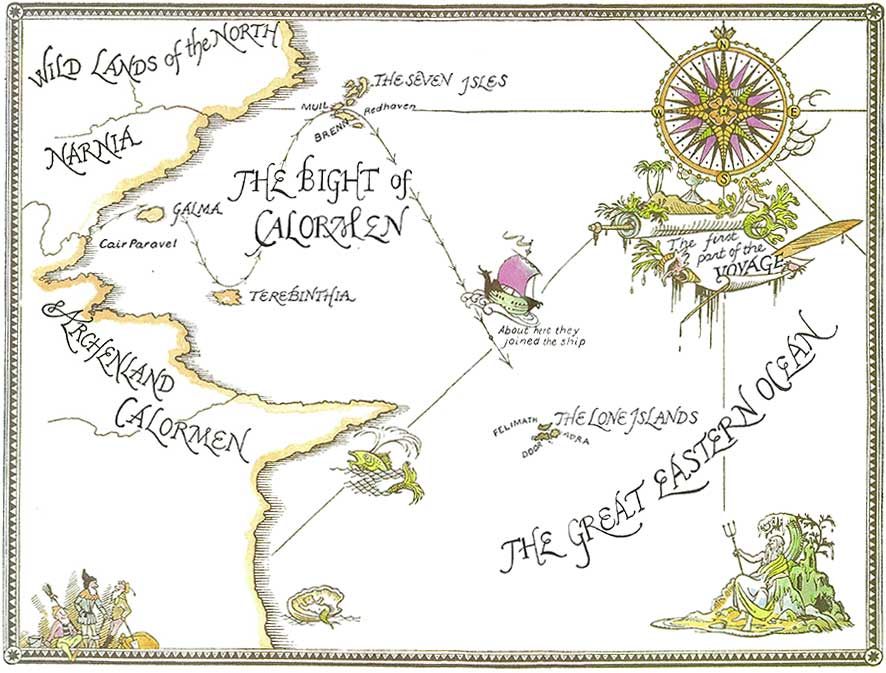 WILD LANDS of the NORTH
THE SEVEN ISLES
MUIL
Redhaven
BRENN
N
W
E
S
NARNIA
THE BIGHT of
CALORMEN
GALMA
Cair Paravel
TEREBINTHIA
The first
part of the
VOYAGE
About here they
joined the ship
ARCHENLAND
CALORMEN
FELIMATH
THE LONE ISLANDS
DOORN
AVRA
THE GREAT EASTERN OCEAN